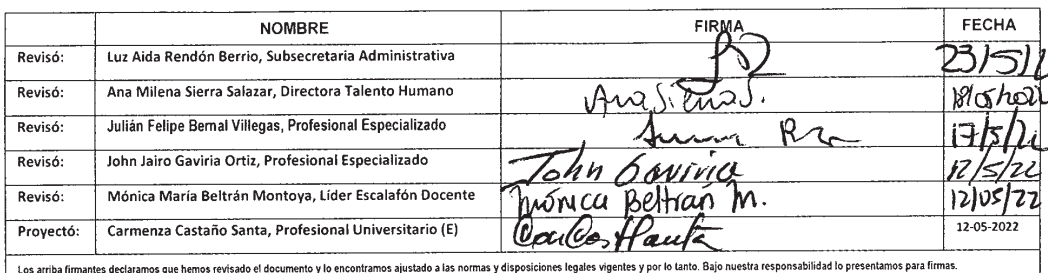 NOMBRE FIRMA FECHA
Revisó: Luz Aida Rendón Berrio, Subsecretaria Administrativa 23/5/2
Revisó: Ana Milena Sierra Salazar, Directora Talento Humano Ana Sierra S. 18/05/2022
Revisó: Julián Felipe Bernal Villegas, Profesional Especializado 17/5/22
Revisó: John Jairo Gaviria Ortiz, Profesional Especializado John Gaviria 12/5/22
Revisó: Mónica María Beltrán Montoya, Líder Escalafón Docente Mónica Beltrán M. 12/05/22
Proyectó: Carmenza Castaño Santa, Profesional Universitario (E) 12-05-2022
Los arriba firmantes declaramos que hemos revisado el documento y lo encontramos ajustado a las normas y disposiciones legales vigentes y por lo tanto. Bajo nuestra responsabilidad lo presentamos para firmas.